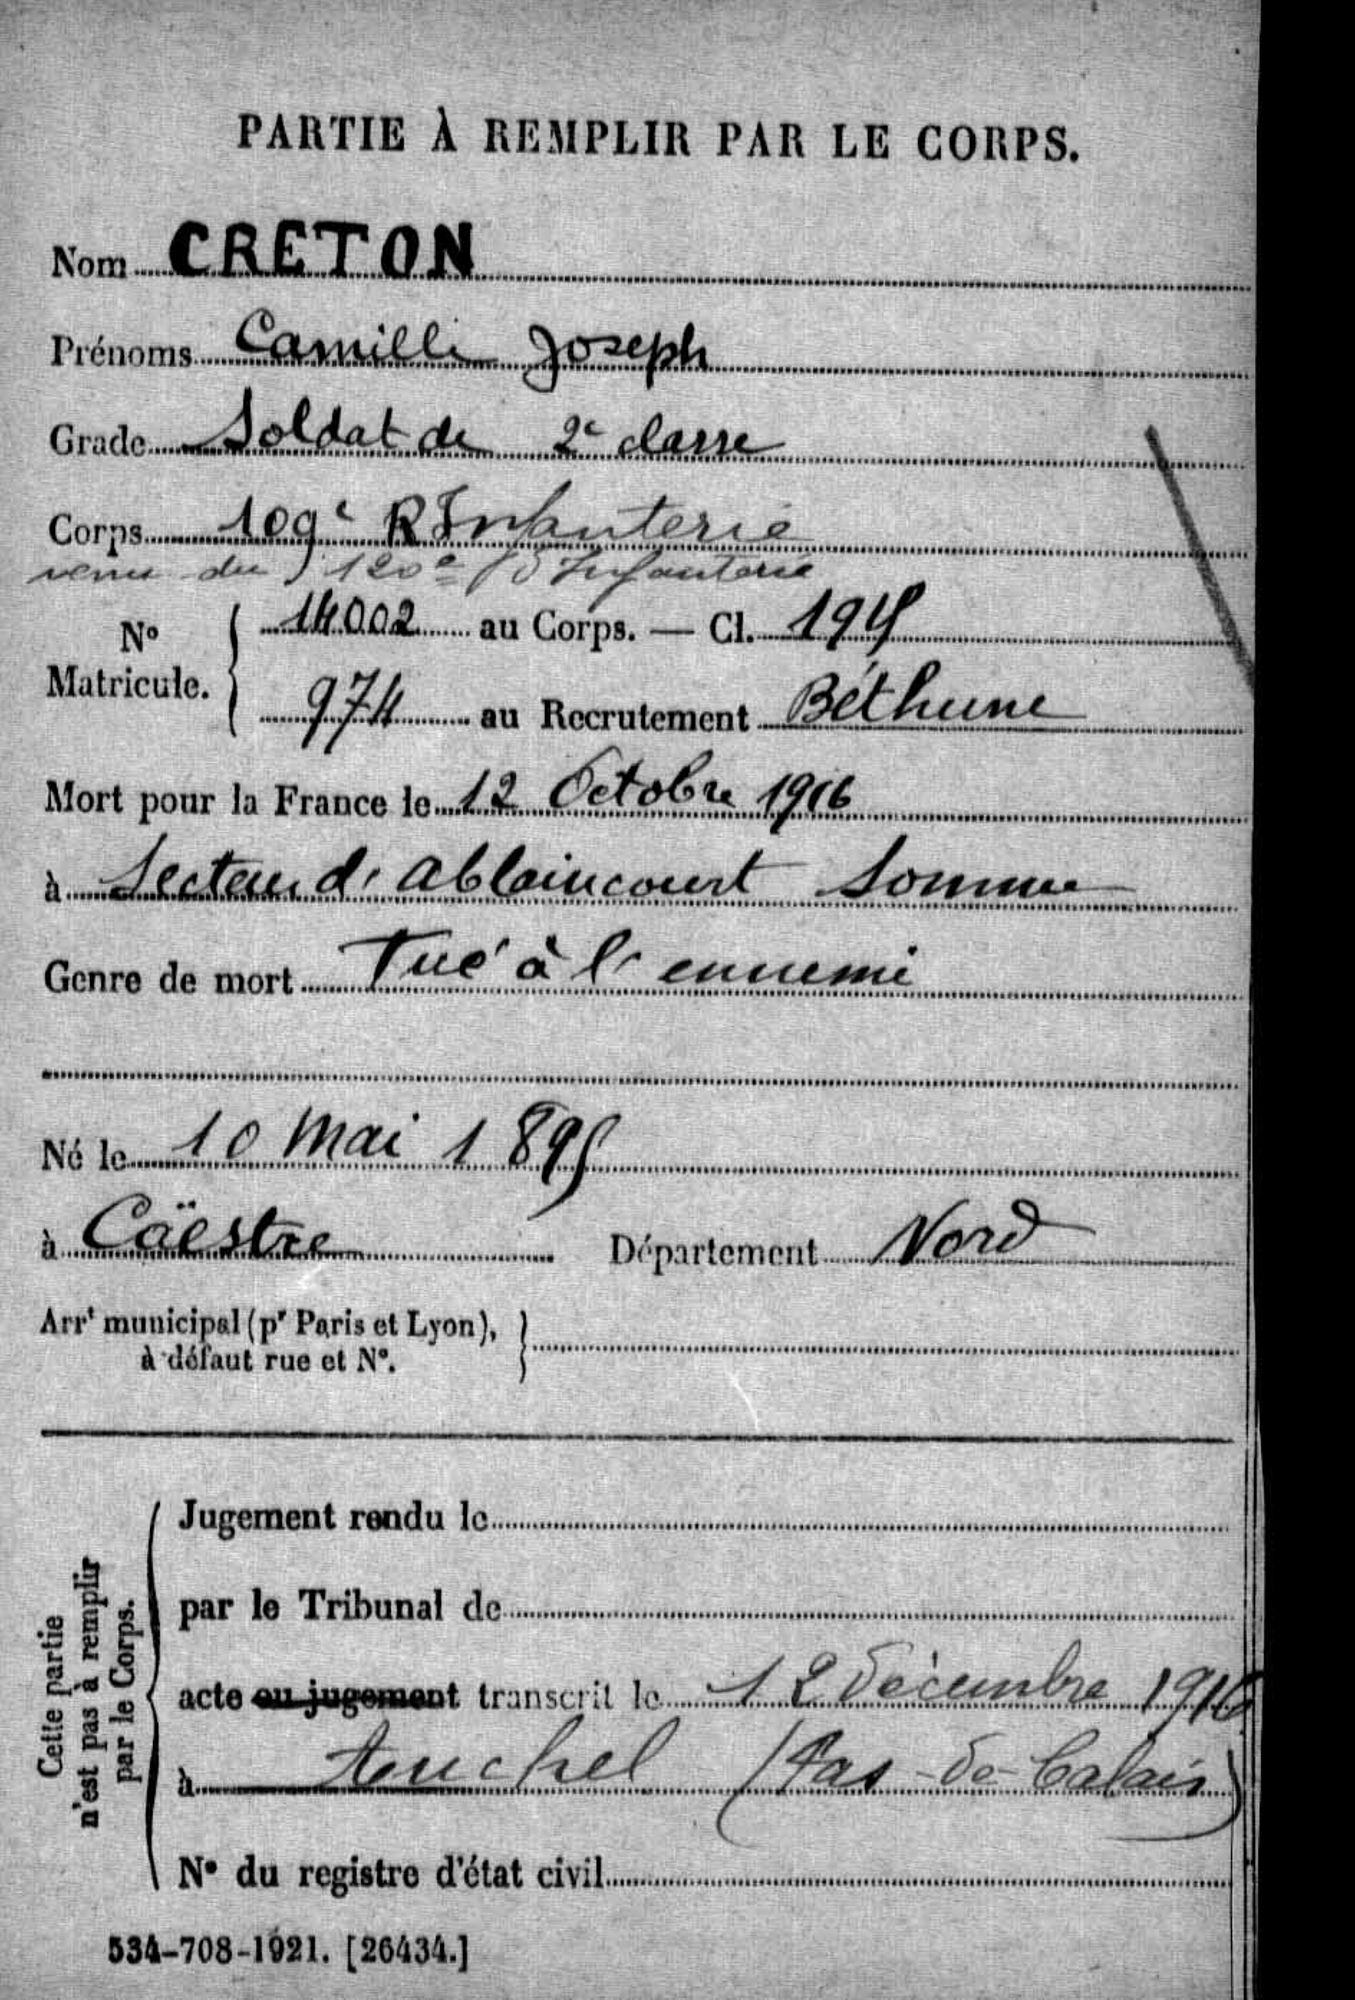 PARTIE À REMPLIR PAR LE CORPS.
Nom CRETON
Prénoms Camille Joseph
Grade Soldat de 2e classe
Corps 109e R Infanterie
venu du 120e d'Infanterie
No Matricule. 14002 au Corps. — Cl. 1915
974 au Recrutement Béthune
Mort pour la France le 12 Octobre 1916
à Secteur d'Ablaincourt Somme
Genre de mort Tué à l'ennemi
Né le 10 Mai 1895
à Caëstre Département Nord
Arrt municipal (pr Paris et Lyon),
à défaut rue et No.
Cette partie
n'est pas à remplir
par le Corps.
Jugement rendu le
par le Tribunal de
acte ou jugement transcrit le 12 décembre 1916
à Auchel (Pas-de-Calais)
No du registre d'état civil
534-708-1921. [26434.]